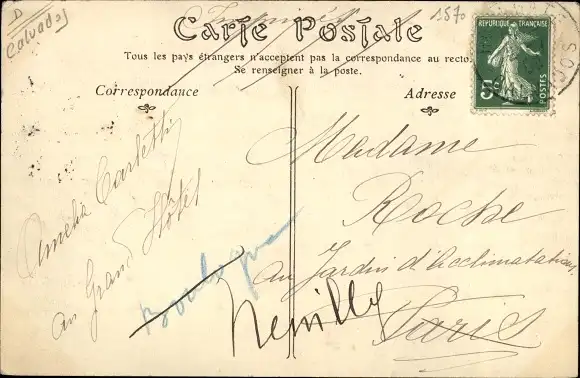 D
Calvados
Imprimés
1570
Carte Postale
Tous les pays étrangers n'acceptent pas la correspondance au recto.
Se renseigner à la poste.
Correspondance
Adresse
RÉPUBLIQUE FRANÇAISE
5c
POSTES
Amelia Carletti
au Grand Hôtel
Madame
Roche
au Jardin d'Acclimatation
Paris
Boulogne
Neuilly